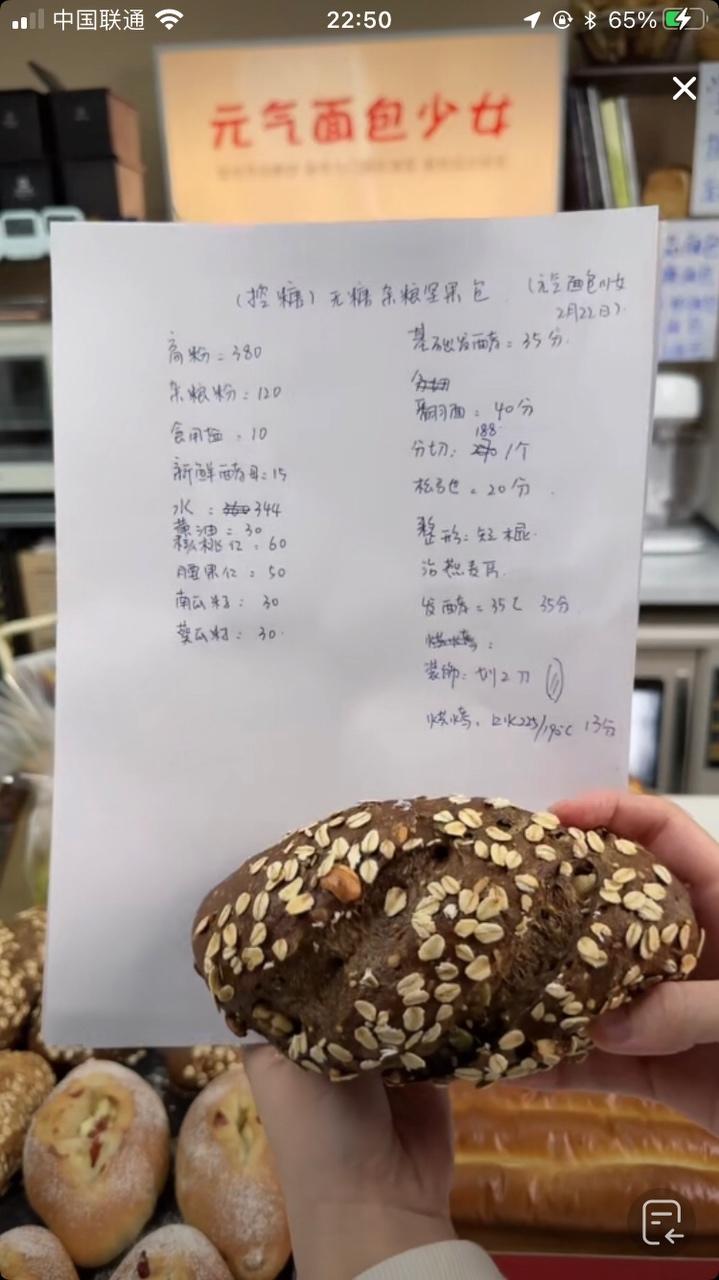 中国联通
22:50
65%
元气面包少女
(控糖)无糖杂粮坚果包
(元气面包少女
2月22日)
高粉:380
杂粮粉:120
食用盐:10
新鲜酵母:15
水:344
黄油:30
核桃仁:60
腰果仁:50
南瓜籽:30
葵瓜籽:30
基础发酵:35分
翻面:40分
188
分切: /个
松弛:20分
整形:短棍
沾燕麦片
发酵:35℃ 35分
烘烤:
装饰:划2刀
烘烤: 225/195℃ 13分